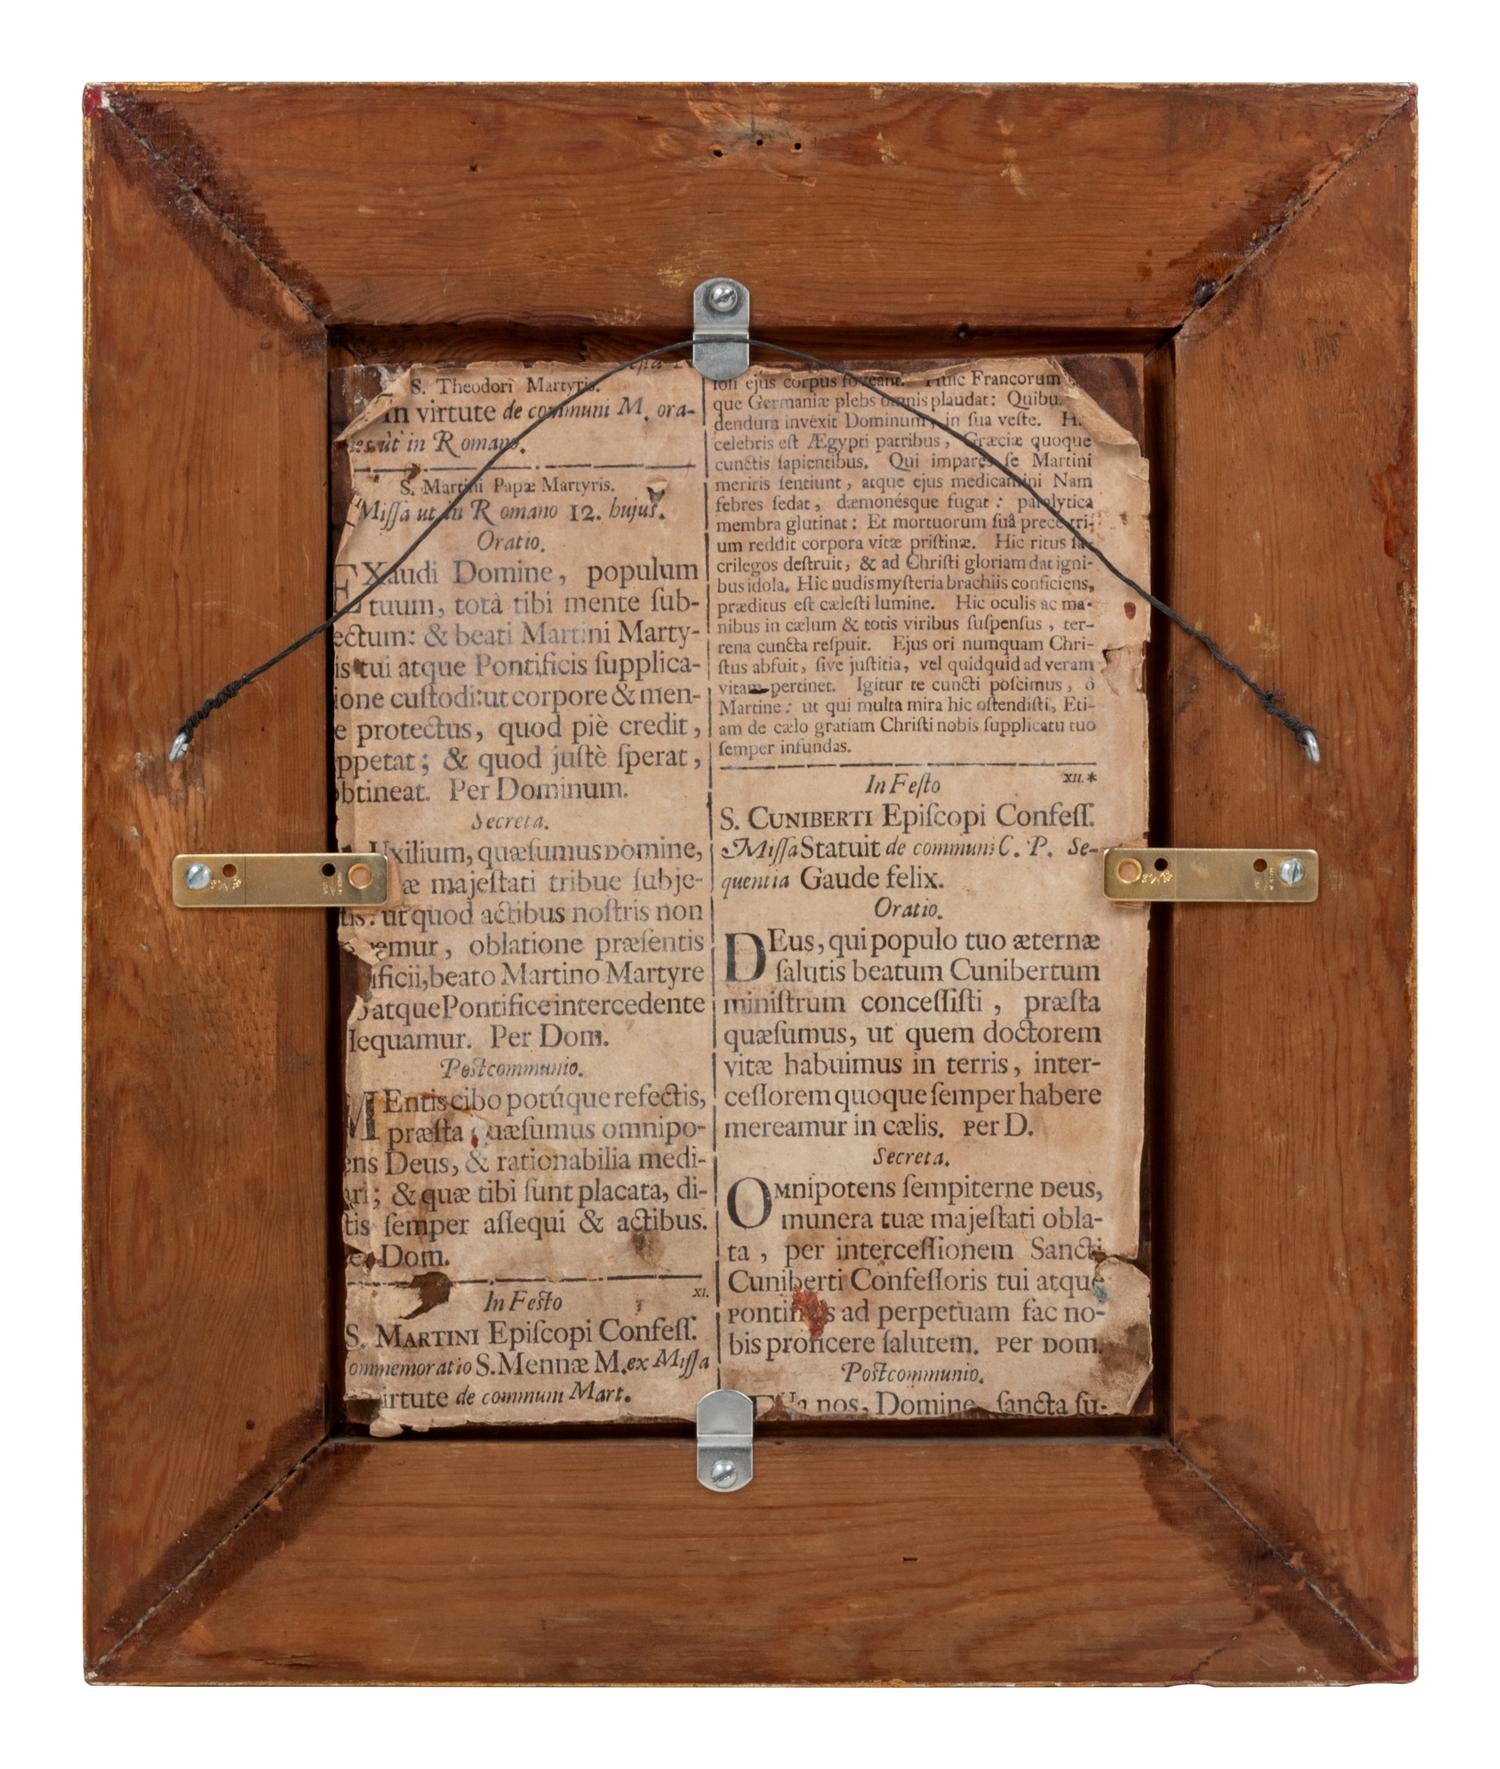 S. Theodori Martyris.
In virtute de communi M. ora-
ut in Romano.
S. Martini Papæ Martyris.
Missa ut in Romano 12. hujus.
Oratio.
EXaudi Domine, populum
tuum, totâ tibi mente ſub-
ectum: & beati Martini Marty-
is tui atque Pontificis ſupplica-
ione cuſtodi: ut corpore & men-
e protectus, quod piè credit,
ppetat; & quod juſtè ſperat,
obtineat. Per Dominum.
Secreta.
Uxilium, quæſumus Domine,
æ majeſtati tribue ſubje-
tis: ut quod actibus noſtris non
emur, oblatione præſentis
ificii, beato Martino Martyre
atque Pontifice intercedente
ſequamur. Per Dom.
Postcommunio.
MEntis cibo potúque refectis,
præſta quæſumus omnipo-
ens Deus, & rationabilia medi-
ri; & quæ tibi ſunt placata, di-
tis ſemper aſſequi & actibus.
Dom.
XI.
In Feſto
S. MARTINI Epiſcopi Confeſſ.
ommemoratio S. Mennæ M. ex Miſſa
virtute de communi Mart.
ejus corpus foveant. Huic Francorum
que Germaniæ plebs omnis plaudat: Quibu.
dendum invexit Dominum, in ſua veſte. H.
celebris eſt Ægypti patribus, Græciæ quoque
cunctis ſapientibus. Qui impares ſe Martini
meritis ſentiunt, atque ejus medicamini Nam
febres ſedat, dæmonéſque fugat: paralytica
membra glutinat: Et mortuorum ſuâ prece tri-
um reddit corpora vitæ priſtinæ. Hic ritus ſa-
crilegos deſtruit, & ad Chriſti gloriam dat igni-
bus idola. Hic nudis myſteria brachiis conficiens,
præditus eſt cæleſti lumine. Hic oculis ac ma-
nibus in cælum & totis viribus ſuſpenſus, ter-
rena cuncta reſpuit. Ejus ori numquam Chri-
ſtus abfuit, ſive juſtitia, vel quidquid ad veram
vitam pertinet. Igitur te cuncti poſcimus, ô
Martine: ut qui multa mira hic oſtendiſti, Eti-
am de cælo gratiam Chriſti nobis ſupplicatu tuo
ſemper infundas.
XII.*
In Feſto
S. CUNIBERTI Epiſcopi Confeſſ.
Miſſa Statuit de communi C. P. Se-
quentia Gaude felix.
Oratio.
DEus, qui populo tuo æternæ
ſalutis beatum Cunibertum
miniſtrum conceſſiſti, præſta
quæſumus, ut quem doctorem
vitæ habuimus in terris, inter-
ceſſorem quoque ſemper habere
mereamur in cælis. Per D.
Secreta.
OMnipotens ſempiterne Deus,
munera tuæ majeſtati obla-
ta, per interceſſionem Sancti
Cuniberti Confeſſoris tui atque
ad perpetuam fac no-
bis proficere ſalutem. Per Dom.
Postcommunio.
nos, Domine, ſancta ſu-